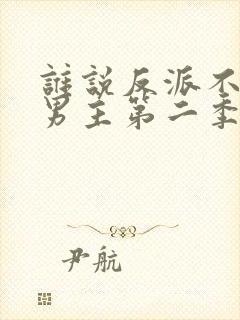 誰說反派不
男主第二季
尹航